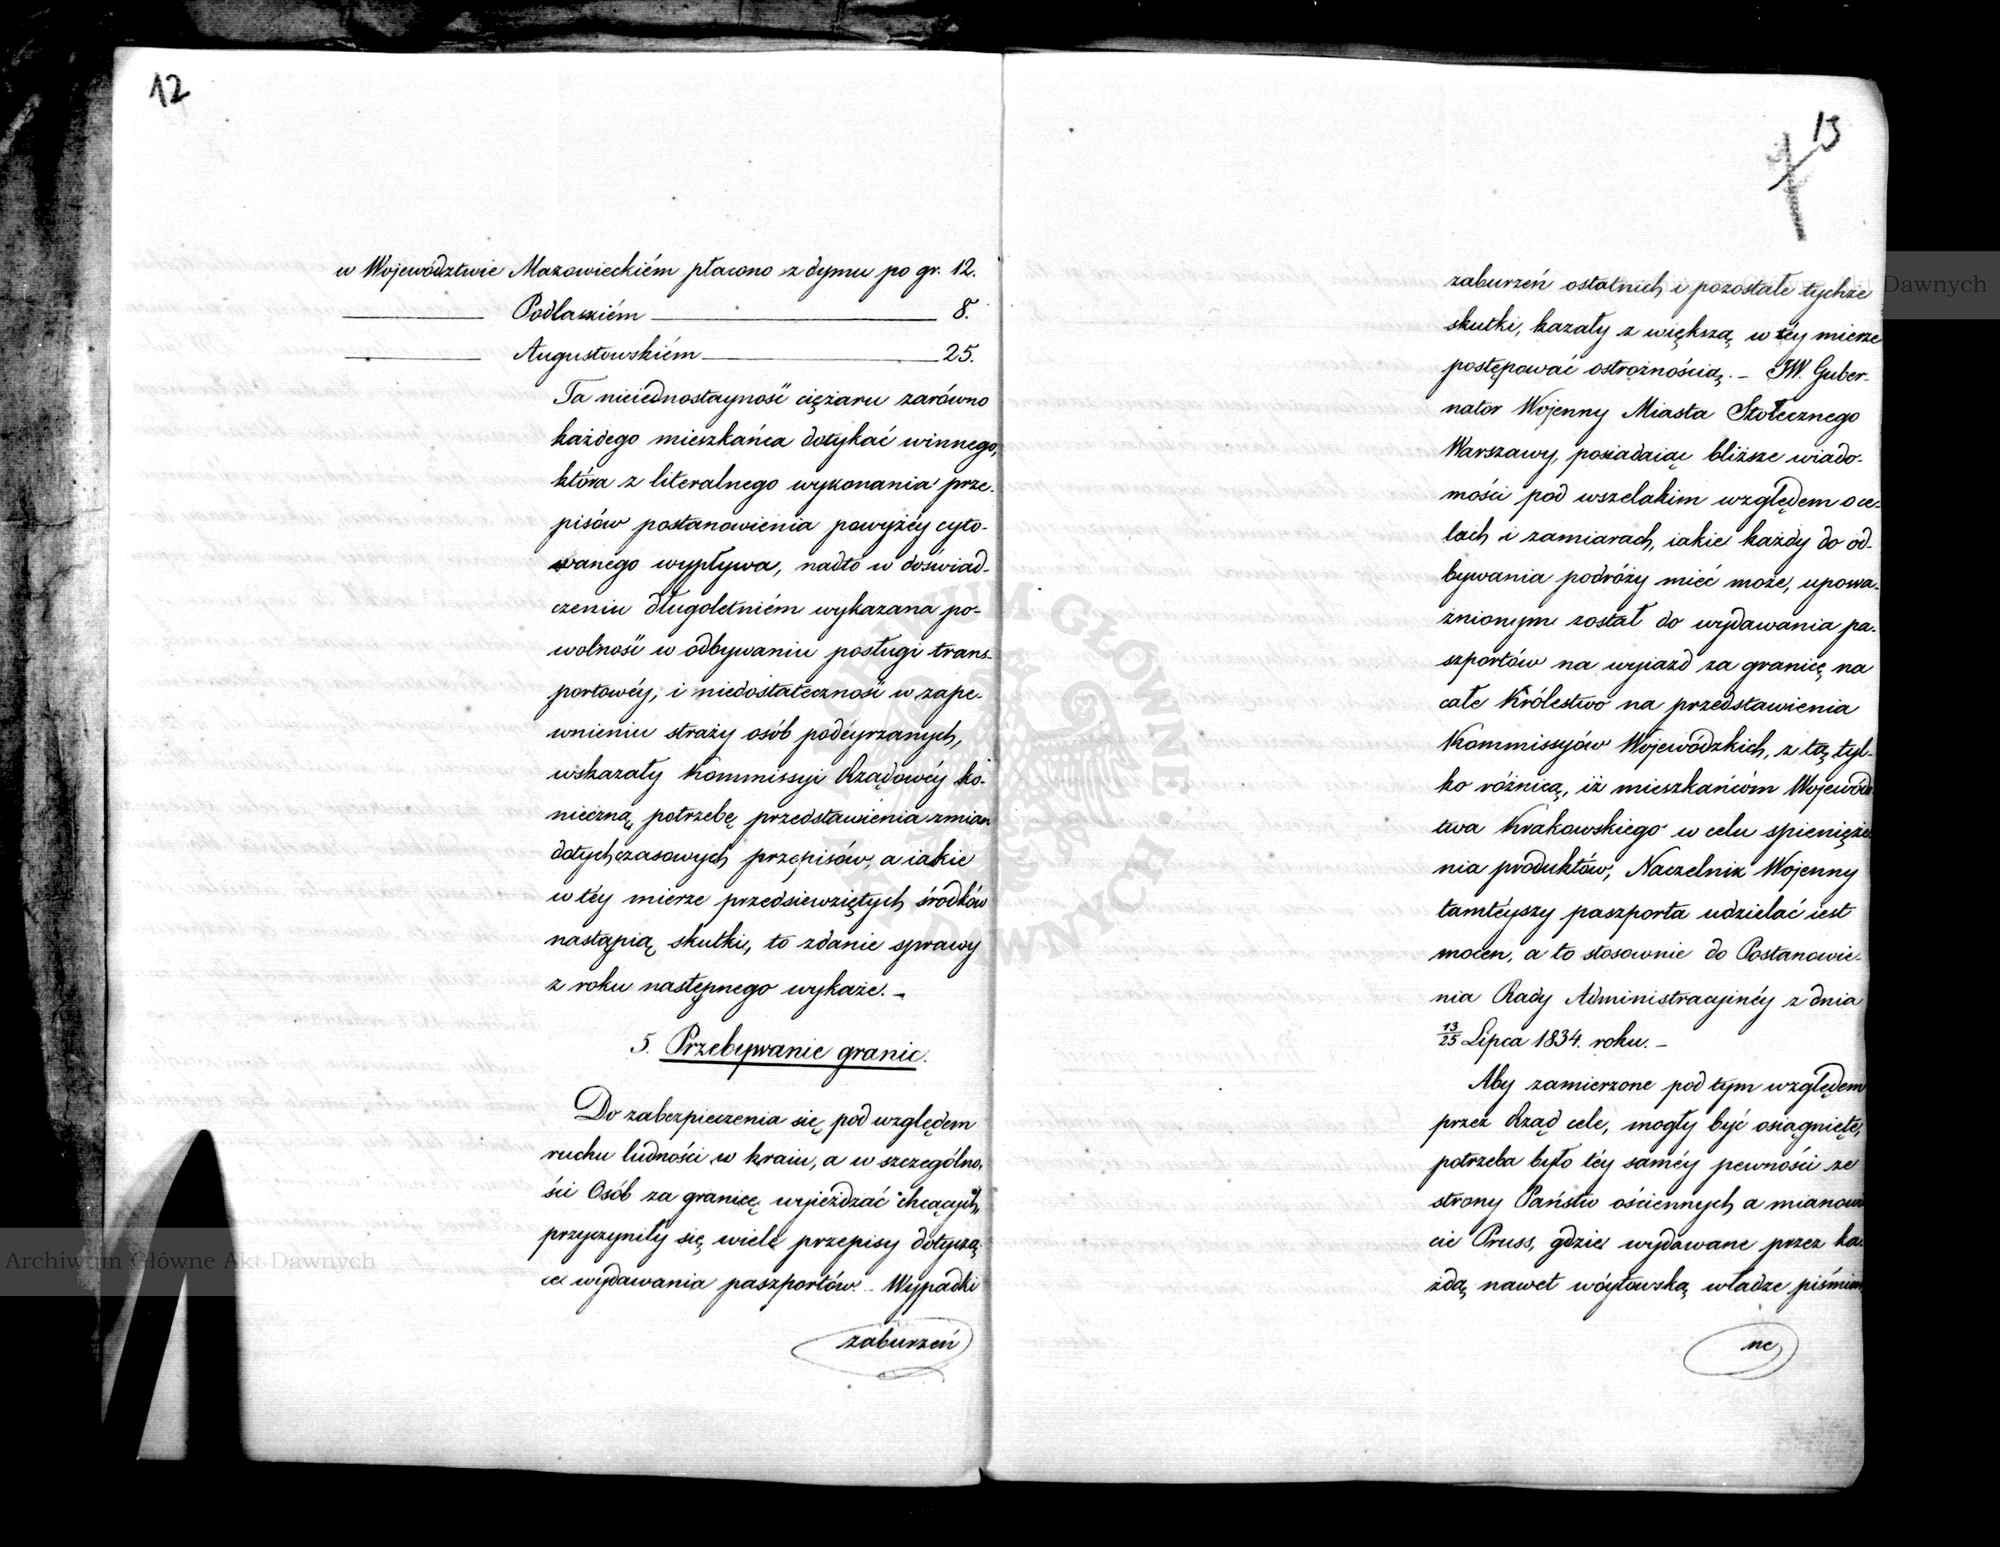 12
w Województwie Mazowieckiém płacono z dymu po gr. 12.
Podlaskiém 8.
Augustowskiém 25.
Ta nieiednostayność ciężaru zarówno
każdego mieszkańca dotykać winnego,
która z literalnego wykonania prze-
pisów postanowienia powyżéy cyto-
wanego wypływa, nadto w doświad-
czeniu długoletniém wykazana po-
wolność w odbywaniu posługi trans-
portowéy, i niedostateczność w zape-
wnieniu straży osób podéyrzanych,
wskazały Kommissyi Rządowéy ko-
nieczną potrzebę przedstawienia zmian
dotychczasowych przepisów, a iakie
w téy mierze przedsiewziętych środków
nastąpią skutki, to zdanie sprawy
z roku następnego wykaże. –
5. Przebywanie granic.
Do zabezpieczenia się pod względem
ruchu ludności w kraiu, a w szczególno-
ści Osób za granicę wyjeżdzać chcących,
przyczyniły się wiele przepisy dotyczą-
ce wydawania paszportów. – Wypadki
zaburzeń
13
zaburzeń ostatnich i pozostałe tychże
skutki, kazały z większą w téy mierze
postępować ostrożnością. – JW. Guber-
nator Wojenny Miasta Stołecznego
Warszawy, posiadaiąc bliższe wiado-
mości pod wszelakim względem o ce-
lach i zamiarach, iakie każdy do od-
bywania podróży mieć może, upowa-
żnionym został do wydawania pa-
szportów na wyiazd za granicę na
całe Królestwo na przedstawienia
Kommissyów Wojewódzkich, z tą tyl-
ko różnicą, iż mieszkańcóm Wojewódz
twa Krakowskiego w celu spienięże
nia produktów, Naczelnik Wojenny
tamtéyszy paszporta udzielać iest
mocen, a to stosownie do Postanowie-
nia Rady Administracyinéy z dnia
13/25 Lipca 1834. roku. –
Aby zamierzone pod tym względem
przez Rząd cele, mogły być osiągnięte,
potrzeba było téy saméy pewności ze
strony Państw ościennych a mianowi
cie Pruss, gdzie wydawane przez ka-
żdą nawet wóytowską władze piśmien
ne
Archiwum Główne Akt Dawnych